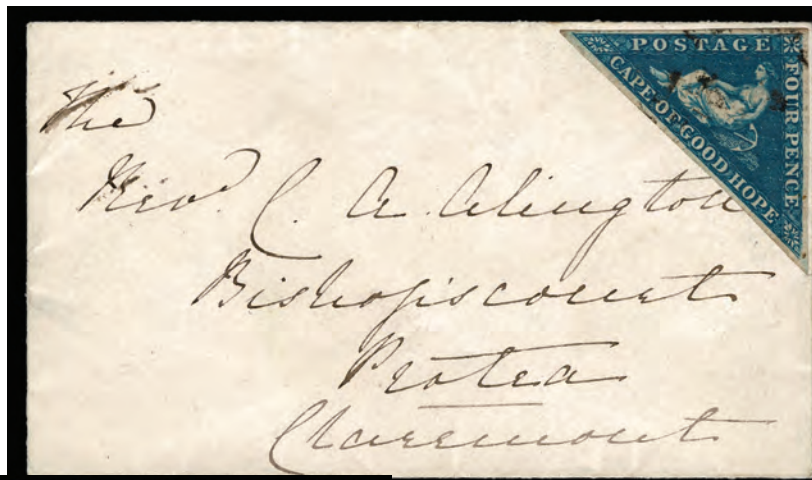 POSTAGE
FOUR PENCE
CAPE OF GOOD HOPE
The
Revd. C. A. Alington
Bishopscourt
Protea
Claremont